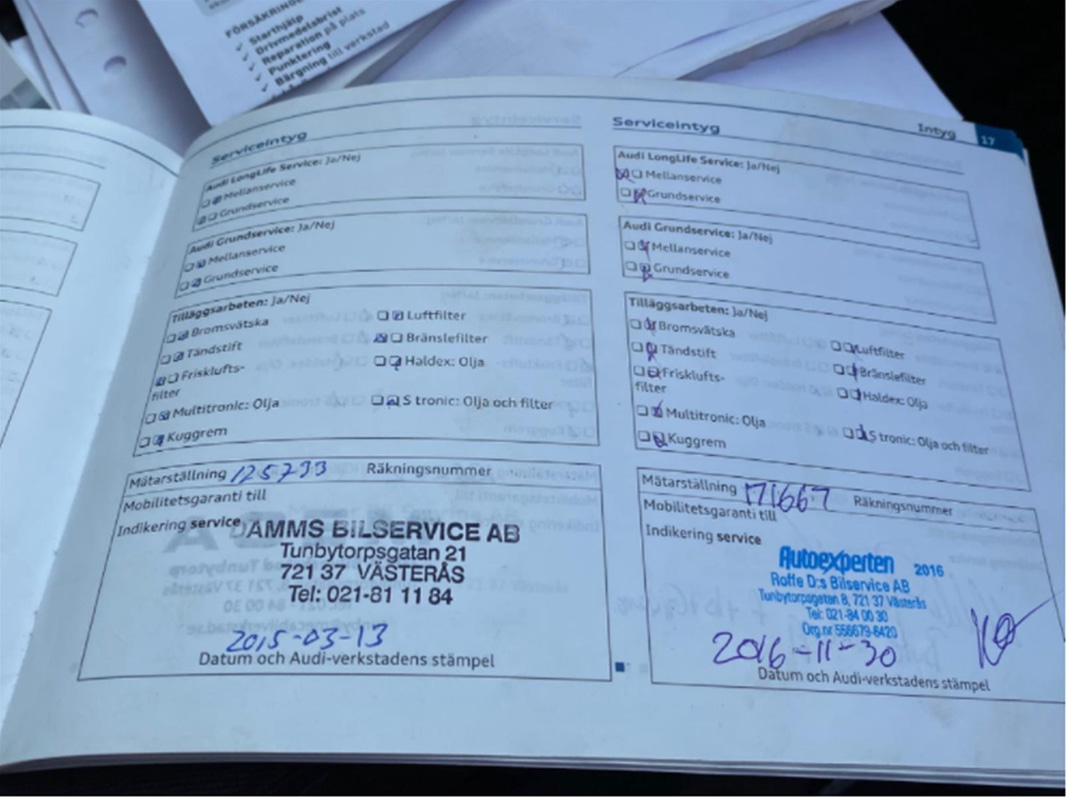 FÖRSÄKRING
✓ Starthjälp
✓ Drivmedelsbrist
✓ Reparation på plats
✓ Punktering
✓ Bärgning till verkstad
Serviceintyg
Audi LongLife Service: Ja/Nej
Mellanservice
Grundservice
Audi Grundservice: Ja/Nej
Mellanservice
Grundservice
Tilläggsarbeten: Ja/Nej
Bromsvätska
Luftfilter
Tändstift
Bränslefilter
Frisklufts-
filter
Haldex: Olja
Multitronic: Olja
S tronic: Olja och filter
Kuggrem
Mätarställning 125733 Räkningsnummer
Mobilitetsgaranti till
Indikering service
DAMMS BILSERVICE AB
Tunbytorpsgatan 21
721 37 VÄSTERÅS
Tel: 021-81 11 84
2015-03-13
Datum och Audi-verkstadens stämpel
Serviceintyg
Intyg 17
Audi LongLife Service: Ja/Nej
Mellanservice
Grundservice
Audi Grundservice: Ja/Nej
Mellanservice
Grundservice
Tilläggsarbeten: Ja/Nej
Bromsvätska
Luftfilter
Tändstift
Bränslefilter
Frisklufts-
filter
Haldex: Olja
Multitronic: Olja
S tronic: Olja och filter
Kuggrem
Mätarställning 171667 Räkningsnummer
Mobilitetsgaranti till
Indikering service
Autoexperten 2016
Roffe D:s Bilservice AB
Tunbytorpsgatan 8, 721 37 Västerås
Tel: 021-84 00 30
Org.nr 556679-8420
2016-11-30
Datum och Audi-verkstadens stämpel